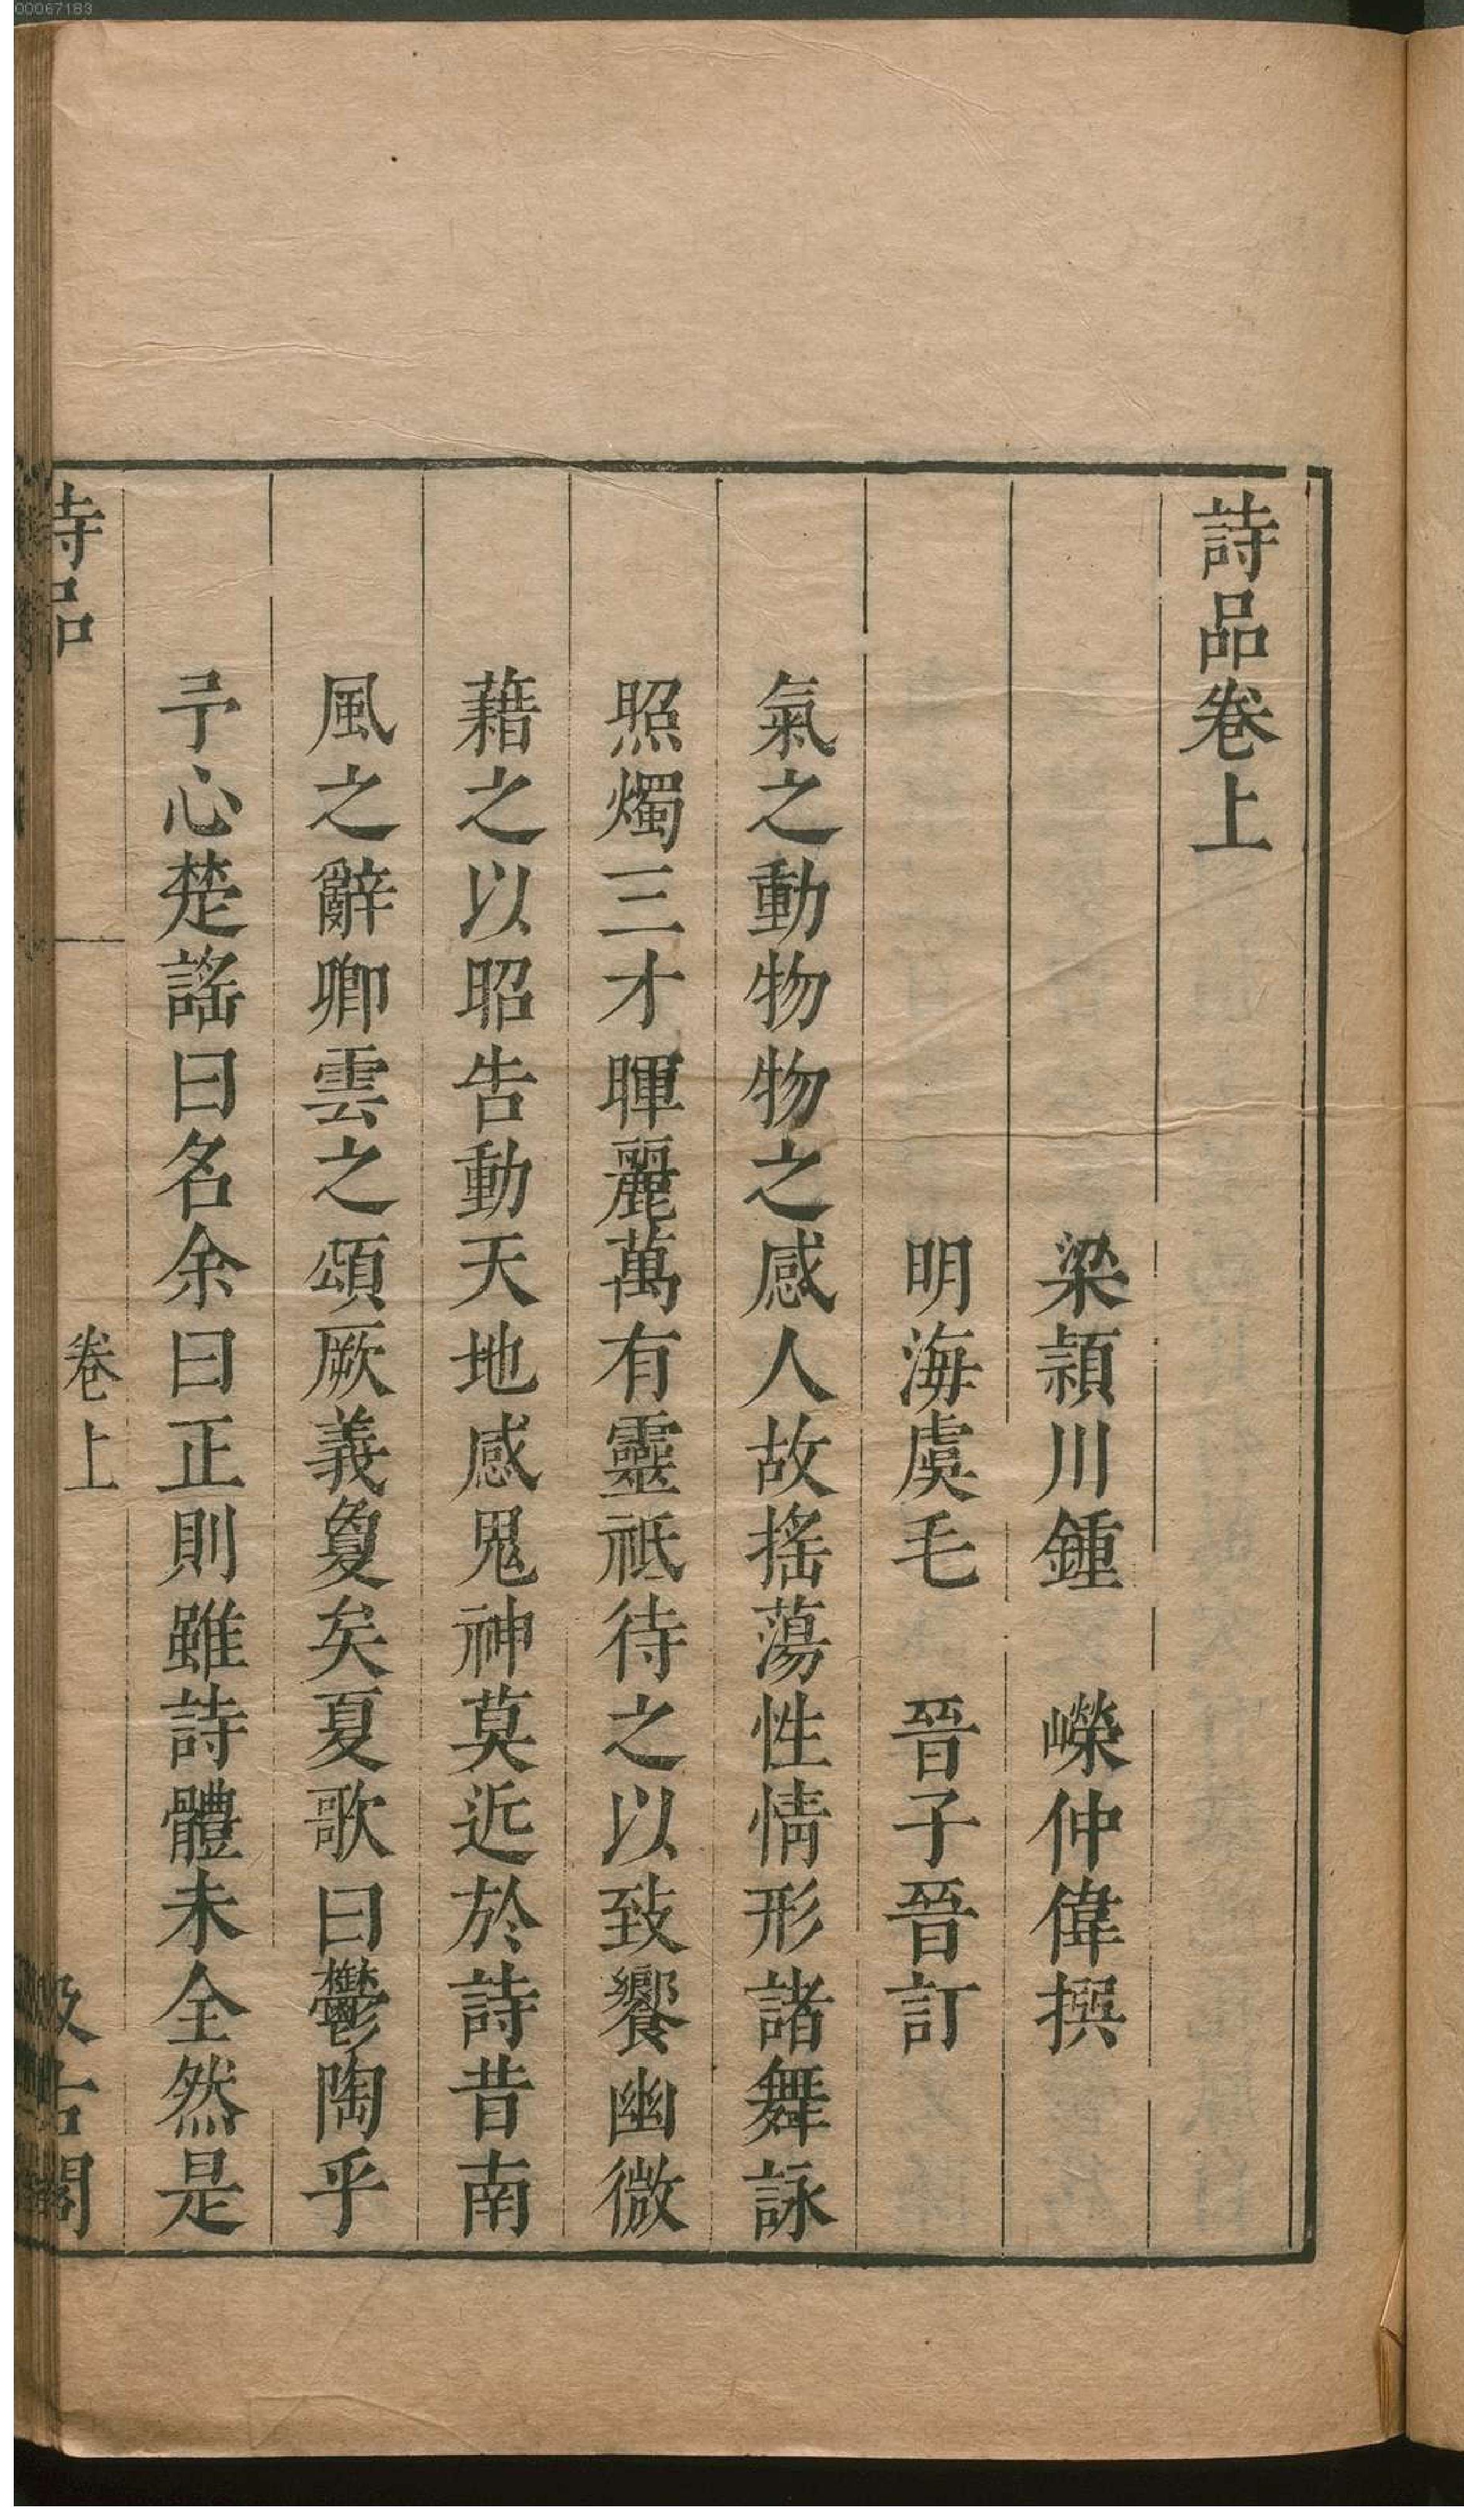 00067183
詩品卷上
梁潁川鍾　嶸仲偉撰
明海虞毛　晉子晉訂
氣之動物物之感人故搖蕩性情形諸舞詠
照燭三才暉麗萬有靈祗待之以致饗幽微
藉之以昭告動天地感鬼神莫近於詩昔南
風之辭卿雲之頌厥義敻矣夏歌曰鬱陶乎
予心楚謠曰名余曰正則雖詩體未全然是
詩品　卷上　汲古閣